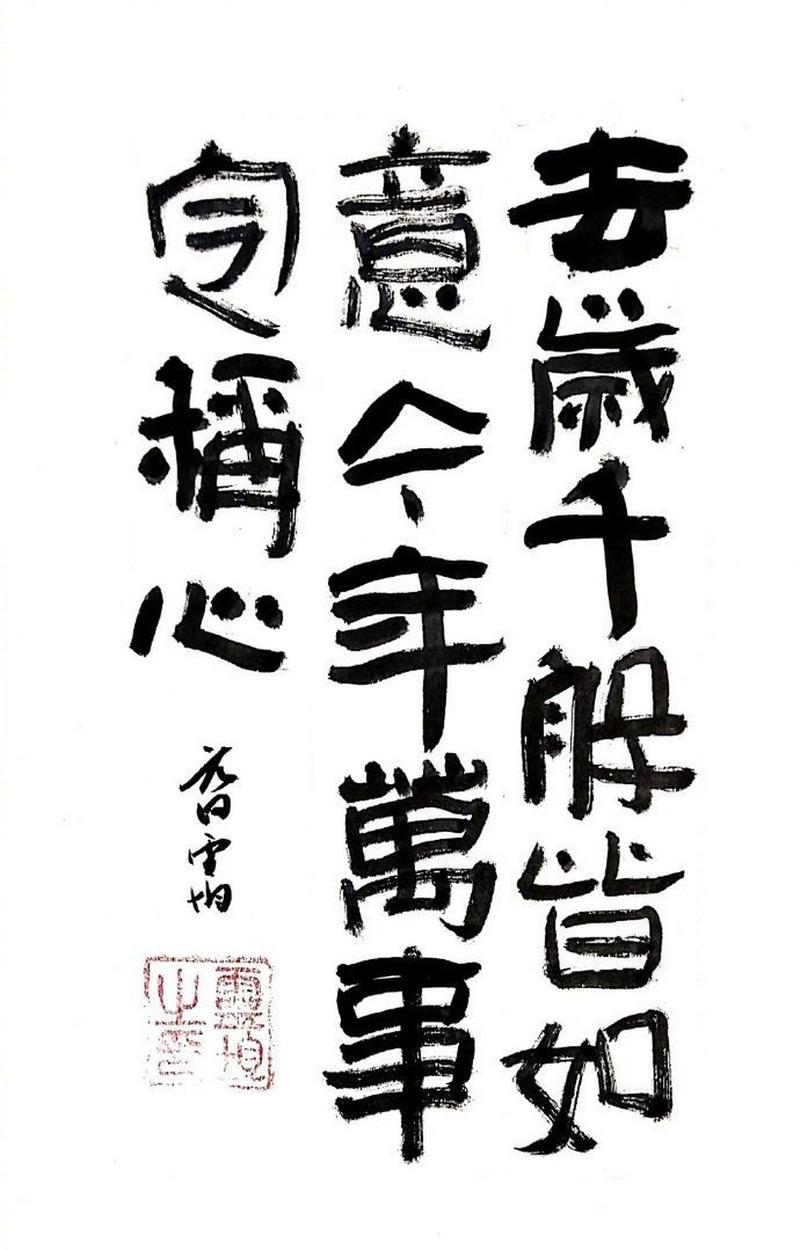 去歲千般皆如
意今年萬事
定稱心
之印